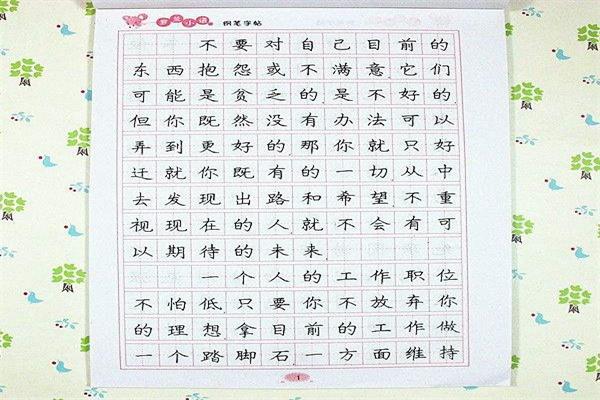 小语 钢笔字帖
不要对自己目前的
东西抱怨或不满意它们
可能是贫乏的是不好的
但你既然没有办法可以
弄到更好的那你就只好
迁就你既有的一切从中
去发现出路和希望不重
视现在的人就不会有可
以期待的未来
一个人的工作职位
不怕低只要你不放弃你
的理想拿目前的工作做
一个踏脚石一方面维持
1